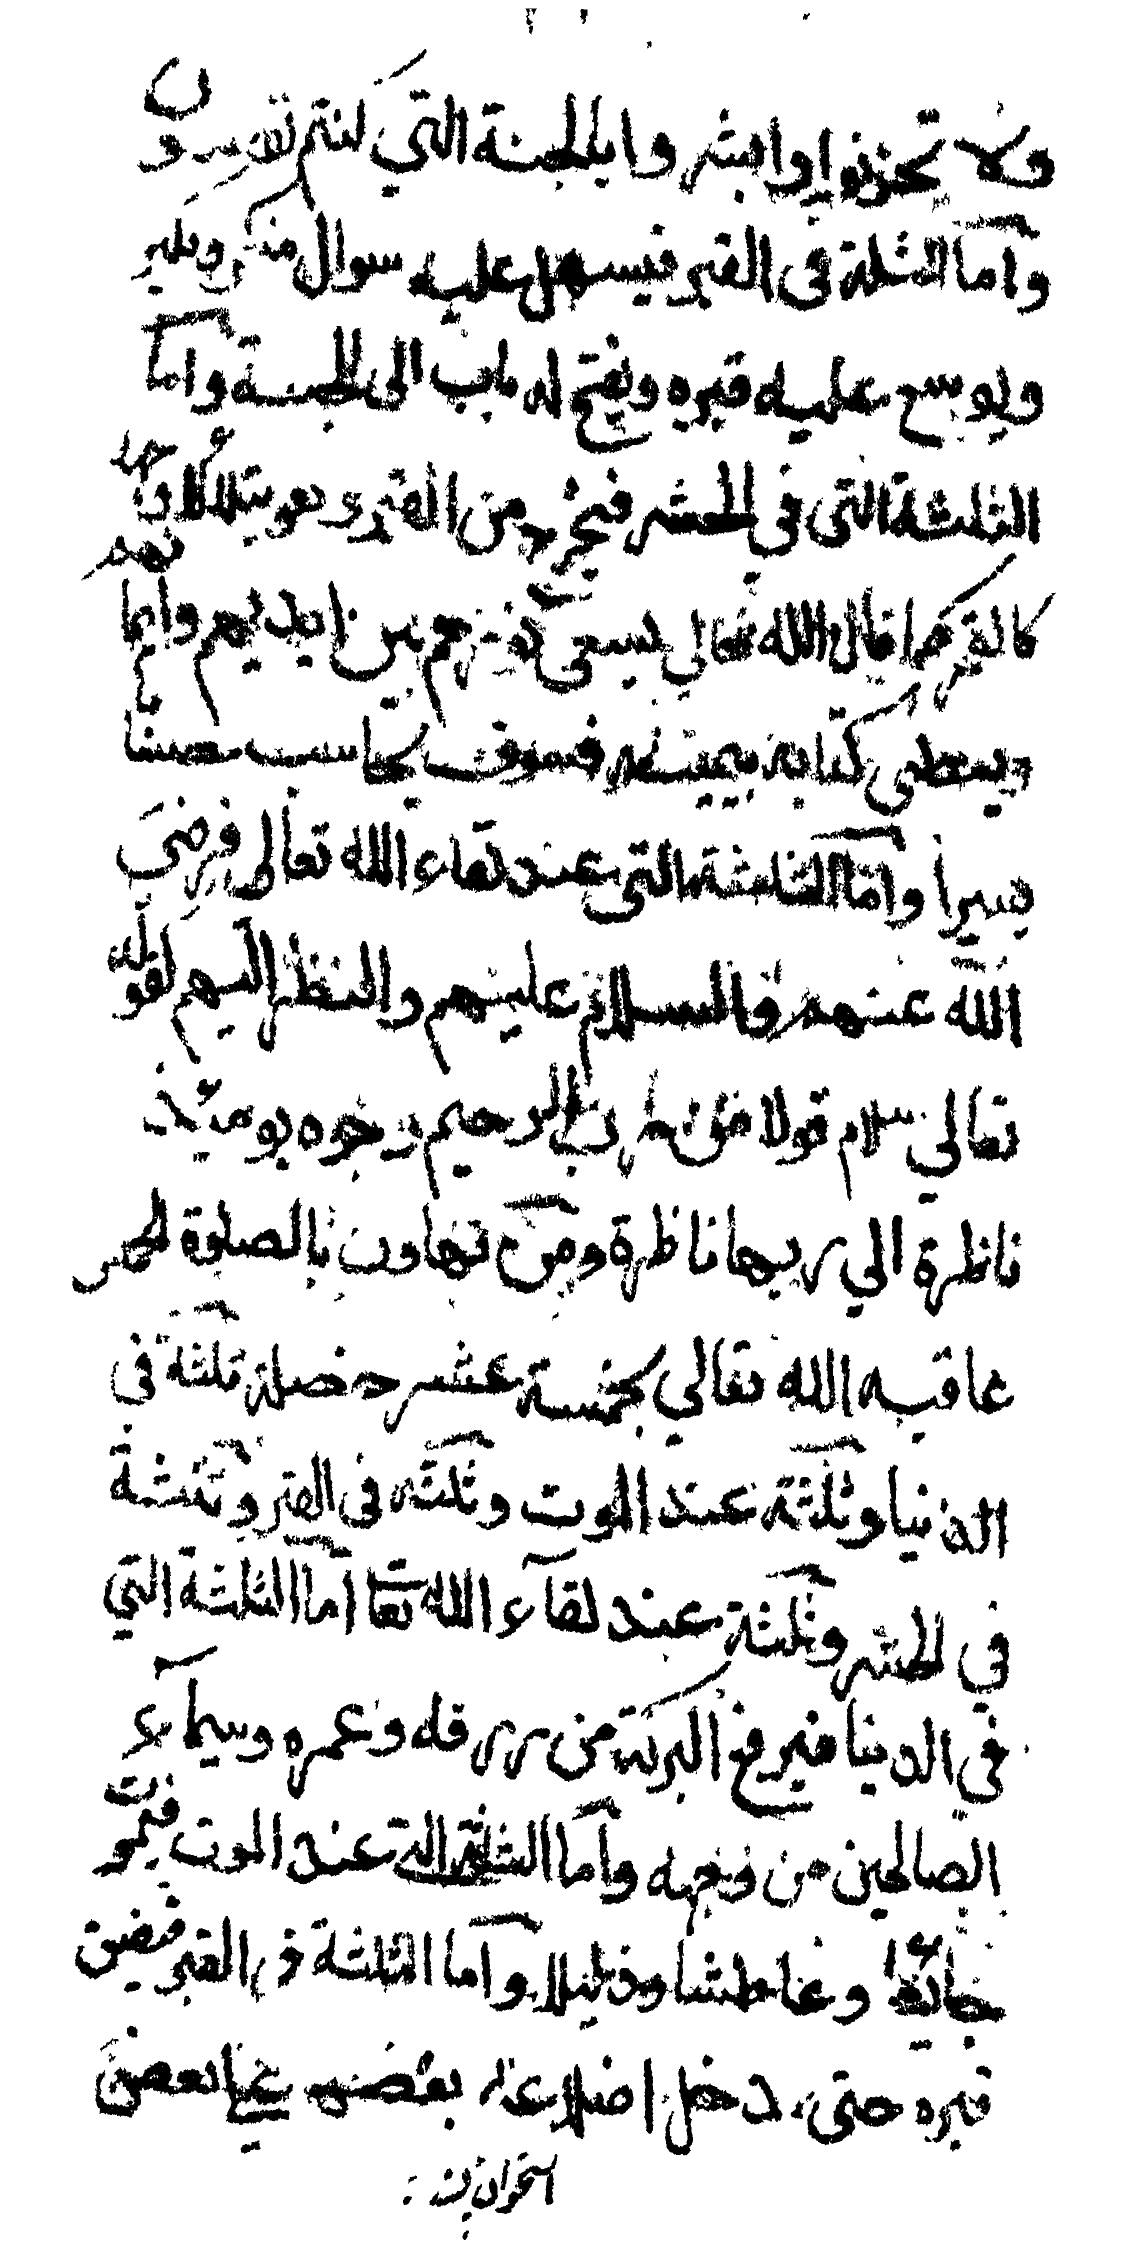 ولا تحزنوا وابشروا بالجنة التي كنتم توعدون
واما الثلثة فى القبر فيسهل عليه سوال منكر ونكير
ويوسع عليه قبره ويفتح له باب الى الجنة واما
الثلثة التى في الحشر فيخرج من القبر و يتلألأ وجهه
كالقمر كما قال الله تعالي يسعى نورهم بين ايديهم وايمانهم
ويعطى كتابه بيمينه فسوف يحاسب حسابا
يسيرا واما الثلثة التى عند لقاء الله تعالى فرضي
الله عنهم والسلام عليهم والنظر اليهم لقوله
تعالي سلام قولا من رب الرحيم وجوه يومئذ
ناظرة الي ربها ناظرة ومن تهاون بالصلوة الخمس
عاقبه الله تعالي بخمسة عشر خصلة ثلثة فى
الدنيا وثلثة عند الموت وثلثه فى القبر وثلثة
في الحشر وثلثة عند لقآء الله تعا اما الثلثة التي
في الدنيا فيرفع البركة من رزقه وعمره وسيمآء
الصالحين من وجهه واما الثلثة التى عند الموت فيموت
جائعا وعاطشا وذليلا واما الثلثة فى القبر فيضيق
قبره حتى يدخل اضلاعه بعضها بعض